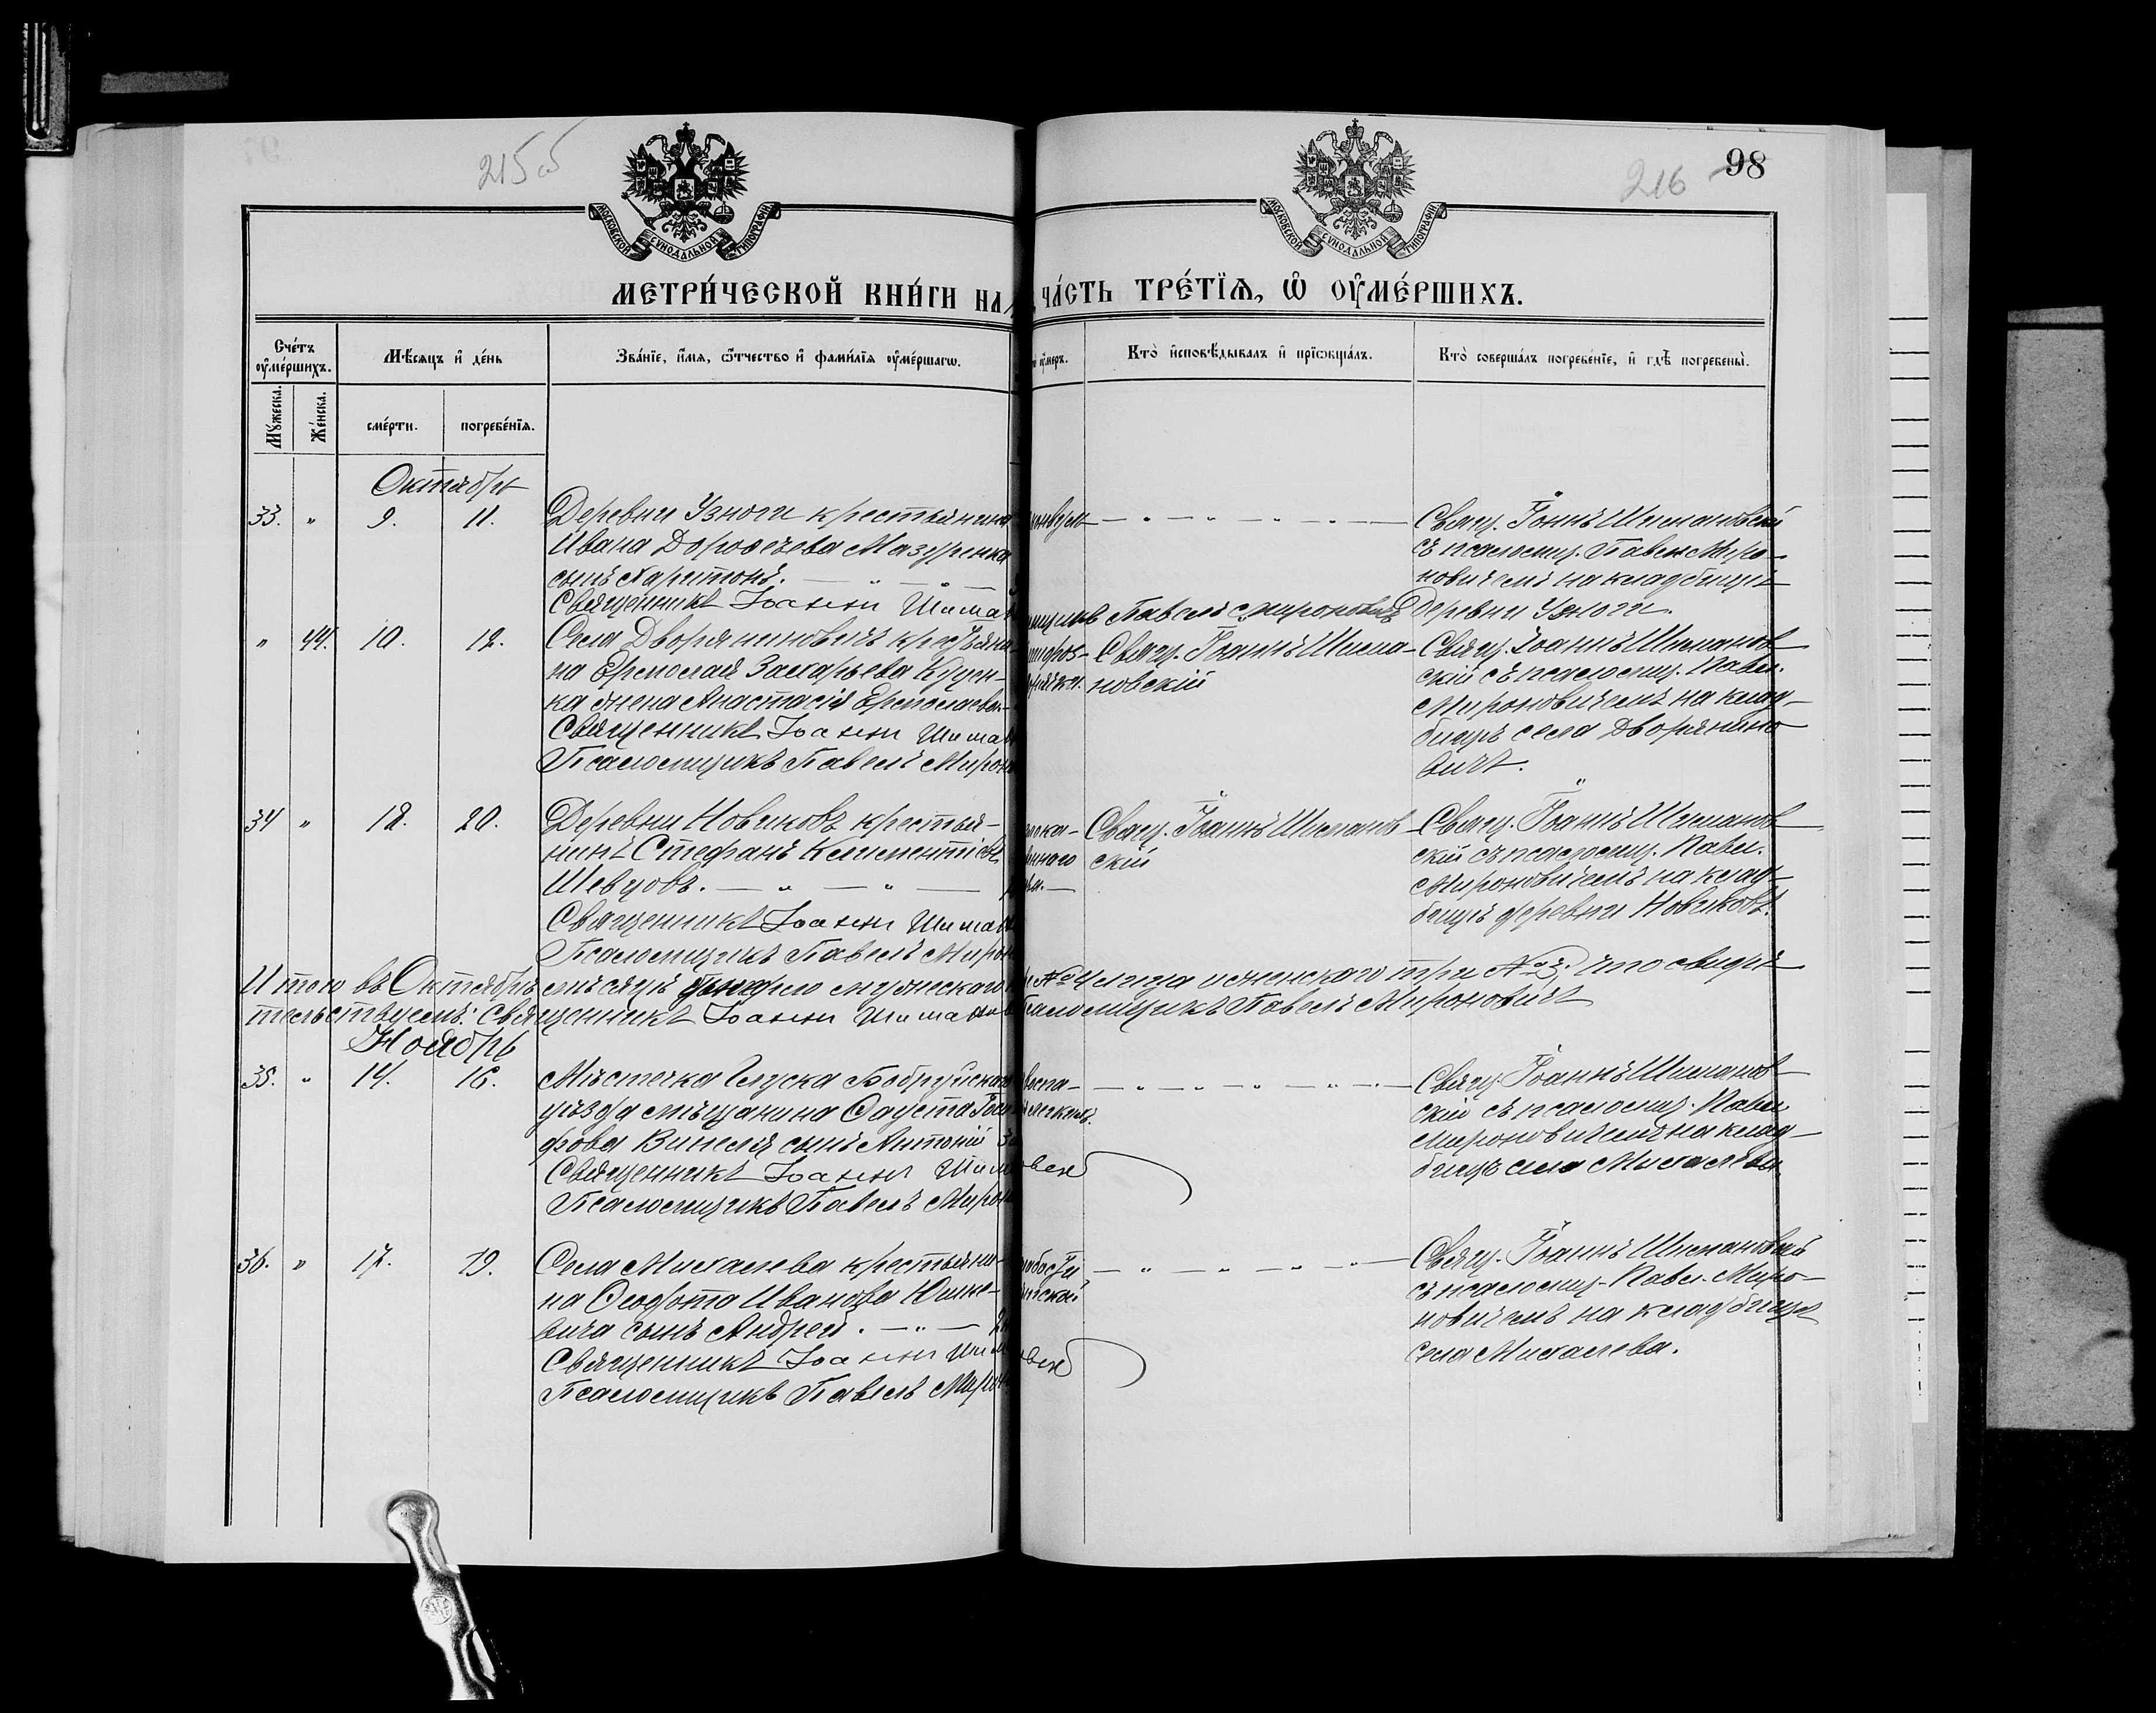 215 об
216 98
МОСКОВСКОЙ СУНОДАЛЬНОЙ ТИПОГРАФІИ
МОСКОВСКОЙ СУНОДАЛЬНОЙ ТИПОГРАФІИ
МЕТРИ́ЧЕСКОЙ КНИ́ГИ НА
ЧА́СТЬ ТРЕ́ТЇѦ, Ѡ҆ ОУ҆МЕ́РШИХЪ.
Сче́тъ оу҆ме́ршихъ.
Мѣ́сяцъ и҆ де́нь
Зва́нїе, и҆́мя, ѻ҆́тчество и҆ фами́лїя оу҆ме́ршагѡ.
оу҆́меръ.
Кто̀ и҆сповѣ́дывалъ и҆ прїѡбща́лъ.
Кто̀ соверша́лъ погребе́нїе, и҆ гдѣ̀ погребены̀.
Му́жеска.
Же́нска.
сме́рти.
погребе́нїя.
Октябрь
33. " 9. 11. Деревни Узноги крестьянина
Ивана Дорофеева Мазуренка
сынъ Харитонъ. — " — " —
Священникъ Іоаннъ
Свящ. Іоаннъ Шимановскій
съ псаломщ. Павл. Миро-
новичемъ на кладбищѣ
деревни Узноги.
Павелъ Мироновичъ
" 44. 10. 12. Села Дворяниновичъ крестьяни-
на Ермолая Захарьева
жена Анастасія Ермолаева
Священникъ Іоаннъ
Псаломщикъ Павелъ
Свящ. Іоаннъ Шима-
новскій
Свящ. Іоаннъ Шиманов-
скій съ псаломщ. Павл.
Мироновичемъ на клад-
бищѣ села Дворянино-
вичъ.
34 " 18. 20. Деревни Новиковъ крестья-
нинъ Стефанъ Климентіевъ
Шевцовъ. — " — " —
Священникъ Іоаннъ
Псаломщикъ Павелъ
Свящ. Іоаннъ Шиманов-
скій
Свящ. Іоаннъ Шиманов-
скій съ псаломщ. Павл.
Мироновичемъ на клад-
бищѣ деревни Новиковъ.
Итого въ Октябрѣ мѣсяцѣ умерло мужескаго № 4 и женскаго три № 3, что свидѣ-
тельствуемъ: Священникъ Іоаннъ Псаломщикъ Павелъ Мироновичъ
Ноябрь
35. " 14. 16. Мѣстечка Глуска Бобруйскаго
уѣзда мѣщанина
сынъ Антоній
Священникъ Іоаннъ
Псаломщикъ Павелъ
Свящ. Іоаннъ Шиманов-
скій съ псаломщ. Павл.
Мироновичемъ на клад-
бищѣ села Михалева.
36. " 17. 19. Села Михалева крестьяни-
на Ѳеодота Иванова Юшке-
вича сынъ Андрей. — " —
Священникъ Іоаннъ
Псаломщикъ Павелъ
Свящ. Іоаннъ Шимановскій
съ псаломщ. Павл. Миро-
новичемъ на кладбищѣ
села Михалева.